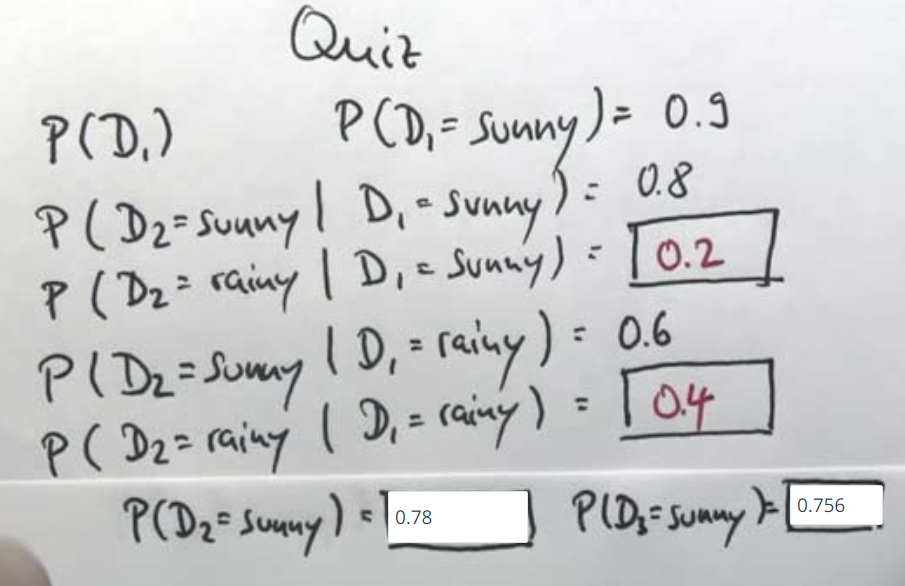 Quiz
P(D₁) P(D₁ = sunny) = 0.9
P(D₂ = sunny | D₁ = sunny) = 0.8
P(D₂ = rainy | D₁ = sunny) = 0.2
P(D₂ = sunny | D₁ = rainy) = 0.6
P(D₂ = rainy | D₁ = rainy) = 0.4
P(D₂ = sunny) = 0.78 P(D₃ = sunny) = 0.756